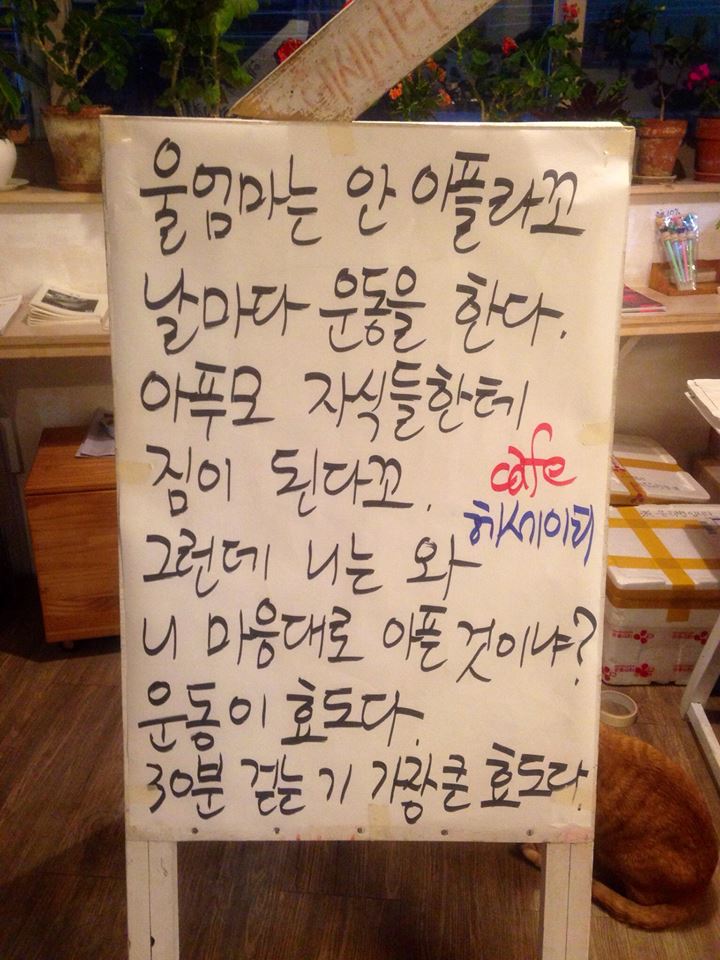 울엄마는 안 아플라꼬
날마다 운동을 한다.
아푸모 자식들한테
짐이 된다꼬.
cafe
헤세이티
그런데 니는 와
니 마음대로 아플것이냐?
운동이 효도다.
30분 걷는기 가장큰효도다.